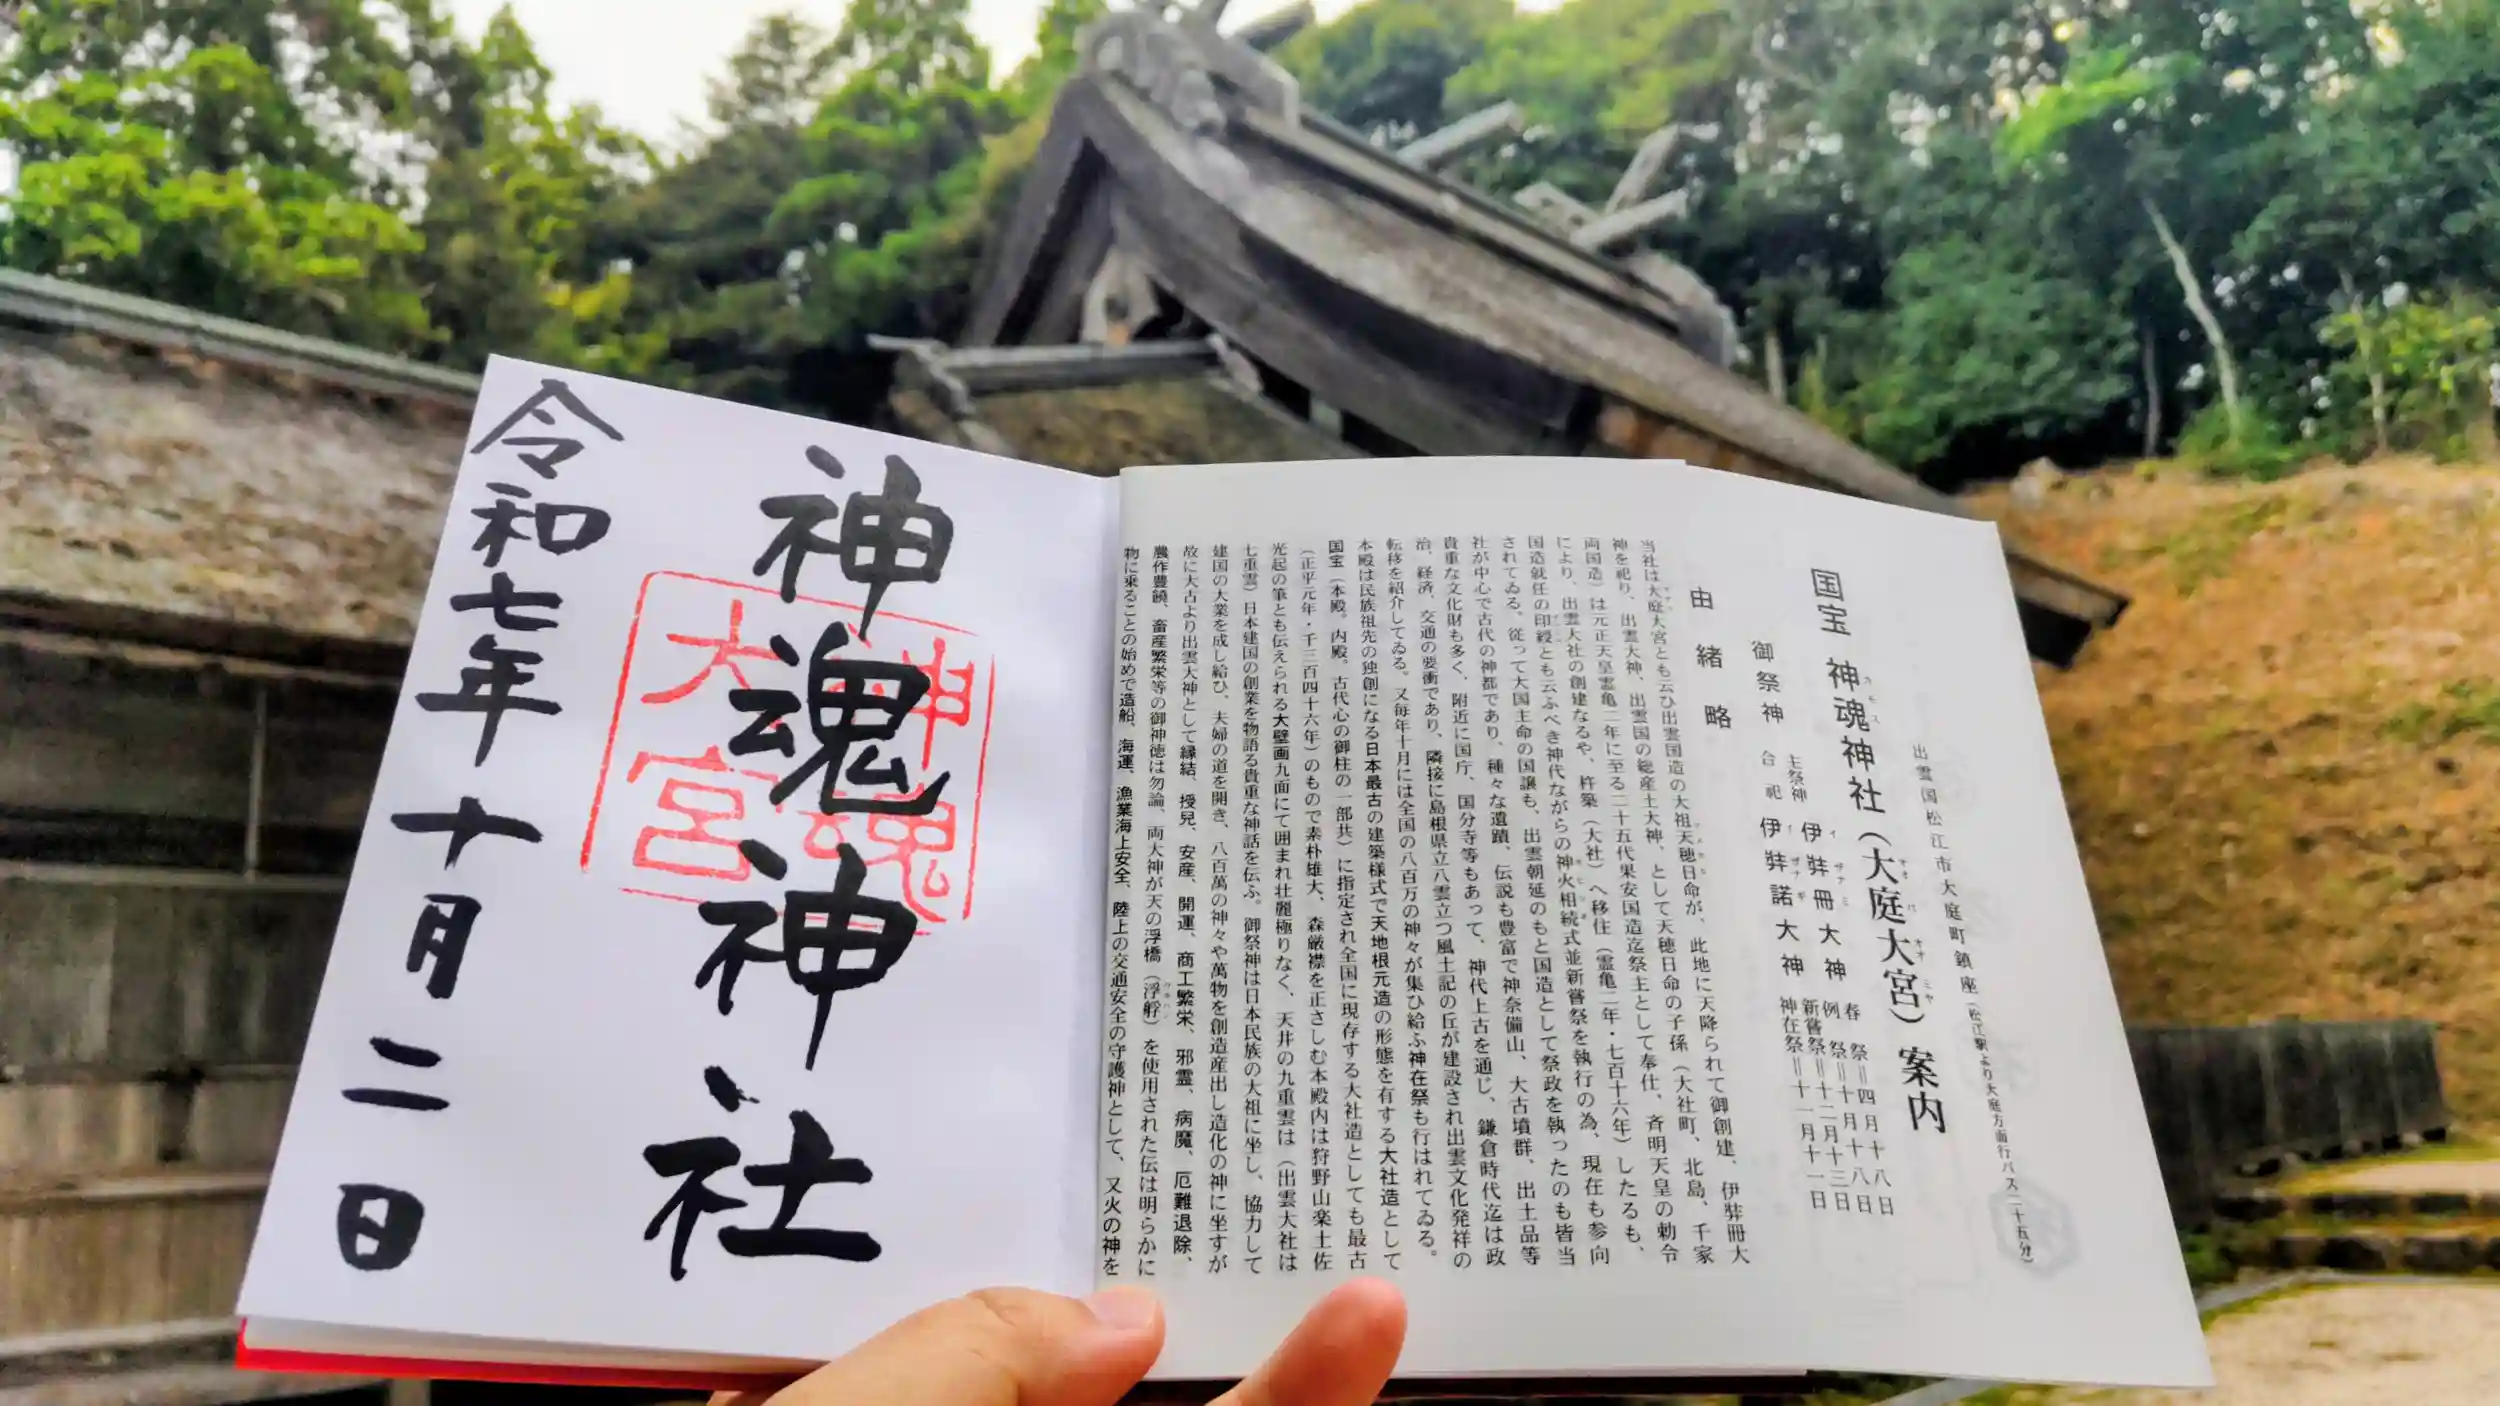 出雲国松江市大庭町鎮座(松江駅より大庭方面行バス二十五分)
国宝 神魂神社(大庭大宮)案内
カモス
オオバ オオミヤ
御祭神 主祭神 伊弉冊大神
イザナミ
合祀 伊弉諾大神
イザナギ
春祭=四月十八日
例祭=十月十八日
新嘗祭=十二月十三日
神在祭=十一月十一日
由緒略
当社は大庭大宮とも云ひ出雲国造の大祖天穂日命が、此地に天降られて御創建、伊弉冊大
神を祀り、出雲大神、出雲国の総産土大神、として天穂日命の子孫(大社町、北島、千家
両国造)は元正天皇霊亀二年に至る二十五代果安国造迄祭主として奉仕、斉明天皇の勅令
により、出雲大社の創建なるや、杵築(大社)へ移住(霊亀二年・七百十六年)したるも、
国造就任の印綬とも云ふべき神代ながらの神火相続式並新嘗祭を執行の為、現在も参向
されてゐる。従って大国主命の国譲も、出雲朝廷のもと国造として祭政を執ったのも皆当
社が中心で古代の神都であり、種々な遺蹟、伝説も豊富で神奈備山、大古墳群、出土品等
貴重な文化財も多く、附近に国庁、国分寺等もあって、神代上古を通じ、鎌倉時代迄は政
治、経済、交通の要衝であり、隣接に島根県立八雲立つ風土記の丘が建設され出雲文化発祥の
転移を紹介してゐる。又毎年十月には全国の八百万の神々が集ひ給ふ神在祭も行はれてゐる。
本殿は民族祖先の独創になる日本最古の建築様式で天地根元造の形態を有する大社造として
国宝(本殿。内殿。古代心の御柱の一部共)に指定され全国に現存する大社造としても最古
(正平元年・千三百四十六年)のもので素朴雄大、森厳襟を正さしむ本殿内は狩野山楽土佐
光起の筆とも伝えられる大壁画九面にて囲まれ壮麗極りなく、天井の九重雲は(出雲大社は
七重雲)日本建国の創業を物語る貴重な神話を伝ふ。御祭神は日本民族の大祖に坐し、協力して
建国の大業を成し給ひ、夫婦の道を開き、八百萬の神々や萬物を創造産出し造化の神に坐すが
故に大古より出雲大神として縁結、授児、安産、開運、商工繁栄、邪霊、病魔、厄難退除、
農作豊饒、畜産繁栄等の御神徳は勿論、両大神が天の浮橋(浮艀)を使用された伝は明らかに
物に乗ることの始めで造船、海運、漁業海上安全、陸上の交通安全の守護神として、又火の神を
神魂神社
神魂
大宮
令和七年十月二日